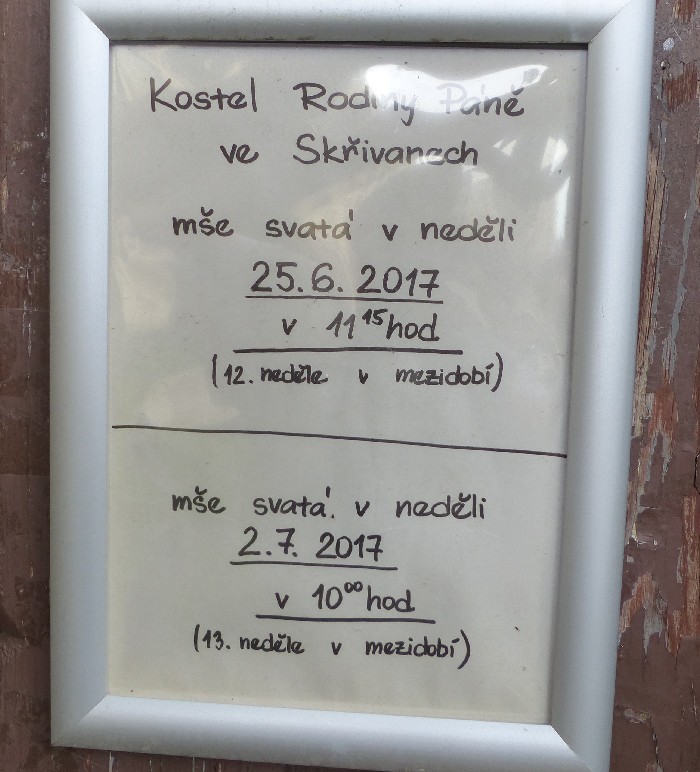 Kostel Rodiny Páně
ve Skřivanech
mše svatá v neděli
25.6. 2017
v 11 15 hod
(12. neděle v mezidobí)
mše svatá v neděli
2.7. 2017
v 10 00 hod
(13. neděle v mezidobí)